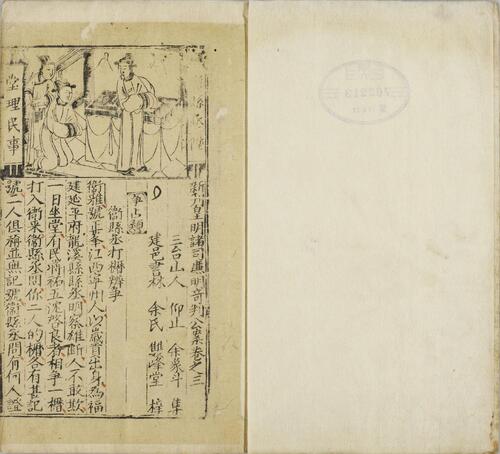 新刊皇明諸司廉明奇判公案卷之三
三台山人 仰止 余象斗 集
建邑書林 余氏 雙峰堂 梓
爭占類
衛縣丞打櫃辨爭
衛雅號正峯江西寧州人以歲貢出身為福
建延平府龍溪縣縣丞明察雄斷人不敢欺
一日坐堂有民蔣祐五沈啓良者相爭一櫃
打入衙來衛縣丞問你二人的櫃各有甚記
號二人俱稱並無記號衛縣丞問有何人證
堂理民事